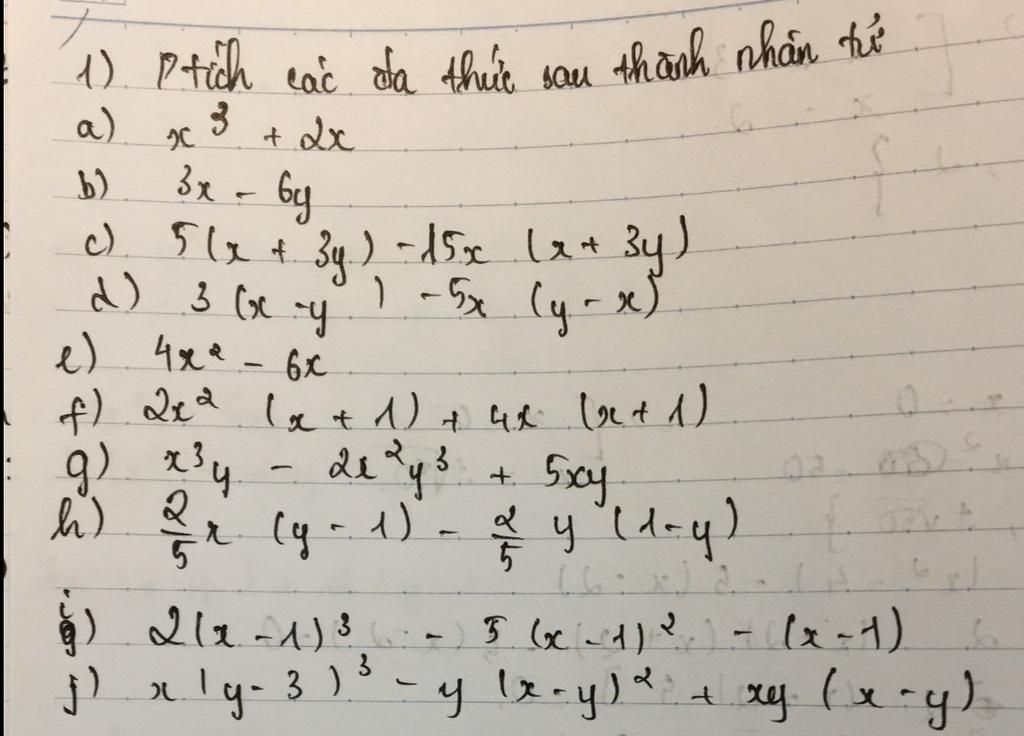 1) Ptích các đa thức sau thành nhân tử
a) x³ + 2x
b) 3x - 6y
c) 5(x + 3y) - 15x (x + 3y)
d) 3 (x - y) - 5x (y - x)
e) 4x² - 6x
f) 2x² (x + 1) + 4x (x + 1)
g) x³y - 2x²y³ + 5xy
h) 2/5 x (y - 1) - 2/5 y (1 - y)
i) 2(x - 1)³ - 5 (x - 1)² - (x - 1)
j) x (y - 3)³ - y (x - y)² + xy (x - y)